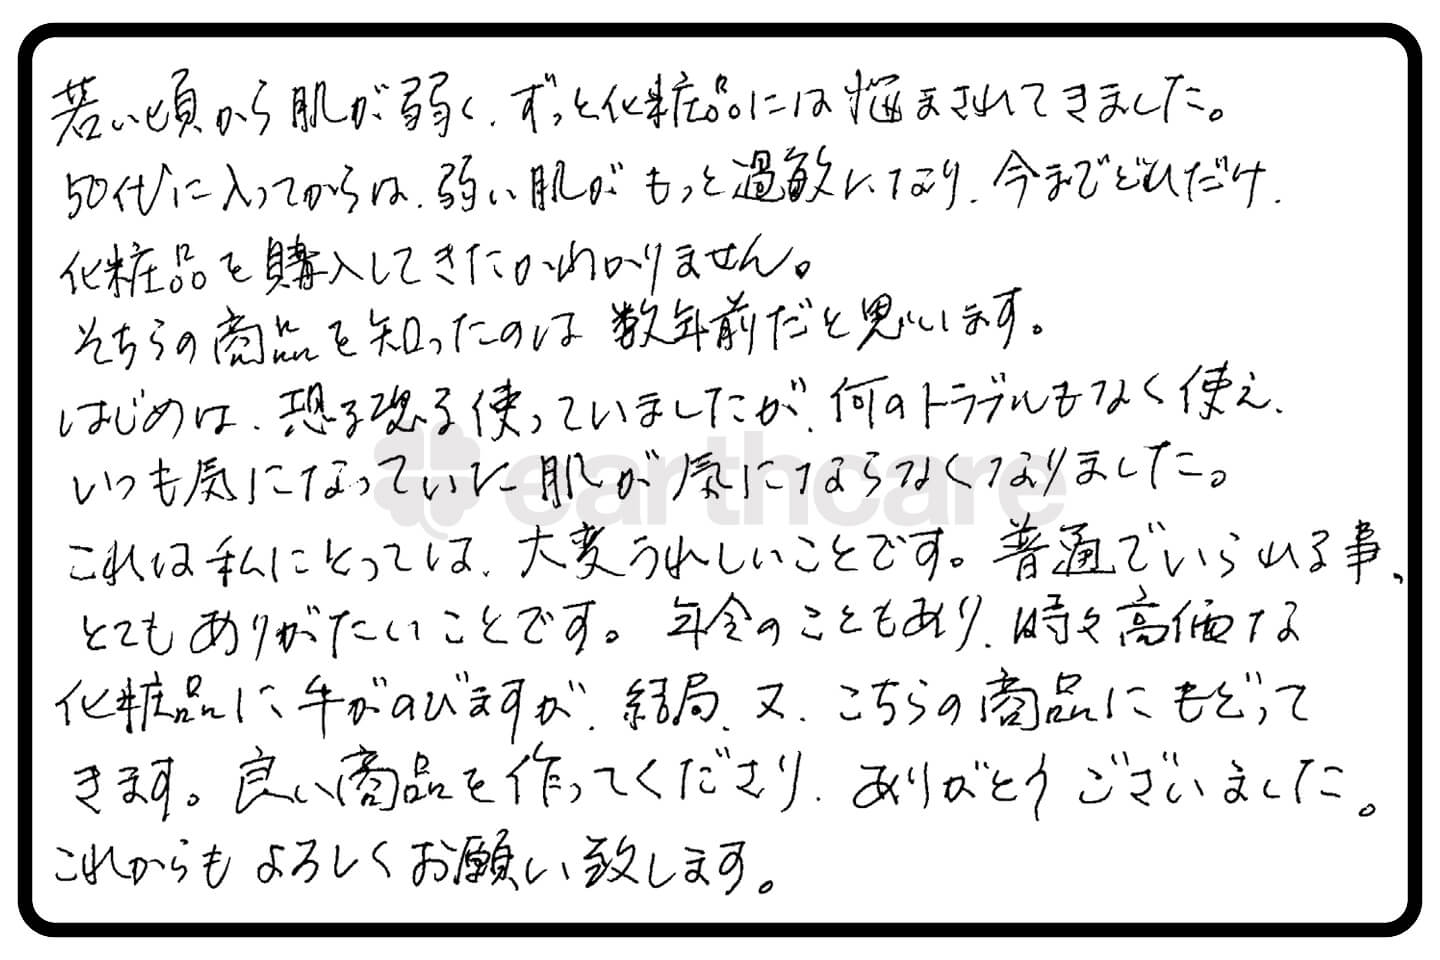 若い頃から肌が弱く、ずっと化粧品には悩まされてきました。
50代に入ってからは、弱い肌がもっと過敏になり、今までどれだけ、
化粧品を購入してきたかわかりません。
そちらの商品を知ったのは数年前だと思います。
はじめは、恐る恐る使っていましたが、何のトラブルもなく使え、
いつも気になっていた肌が気にならなくなりました。
earthcare
これは私にとっては、大変うれしいことです。普通でいられる事、
とてもありがたいことです。年令のこともあり、時々高価な
化粧品に手がのびますが、結局、又、こちらの商品にもどって
きます。良い商品を作ってくださり、ありがとうございました。
これからもよろしくお願い致します。